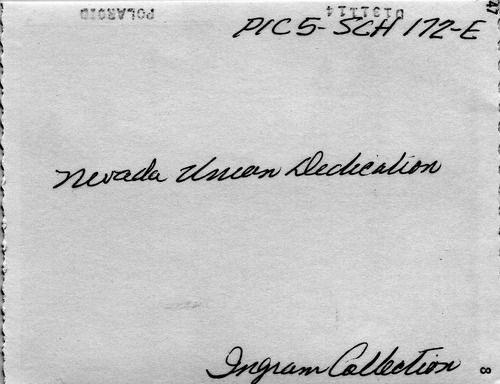 POLAROID 0131114
47
PIC 5-SCH 172-E
Nevada Union Dedication
Ingram Collection
8